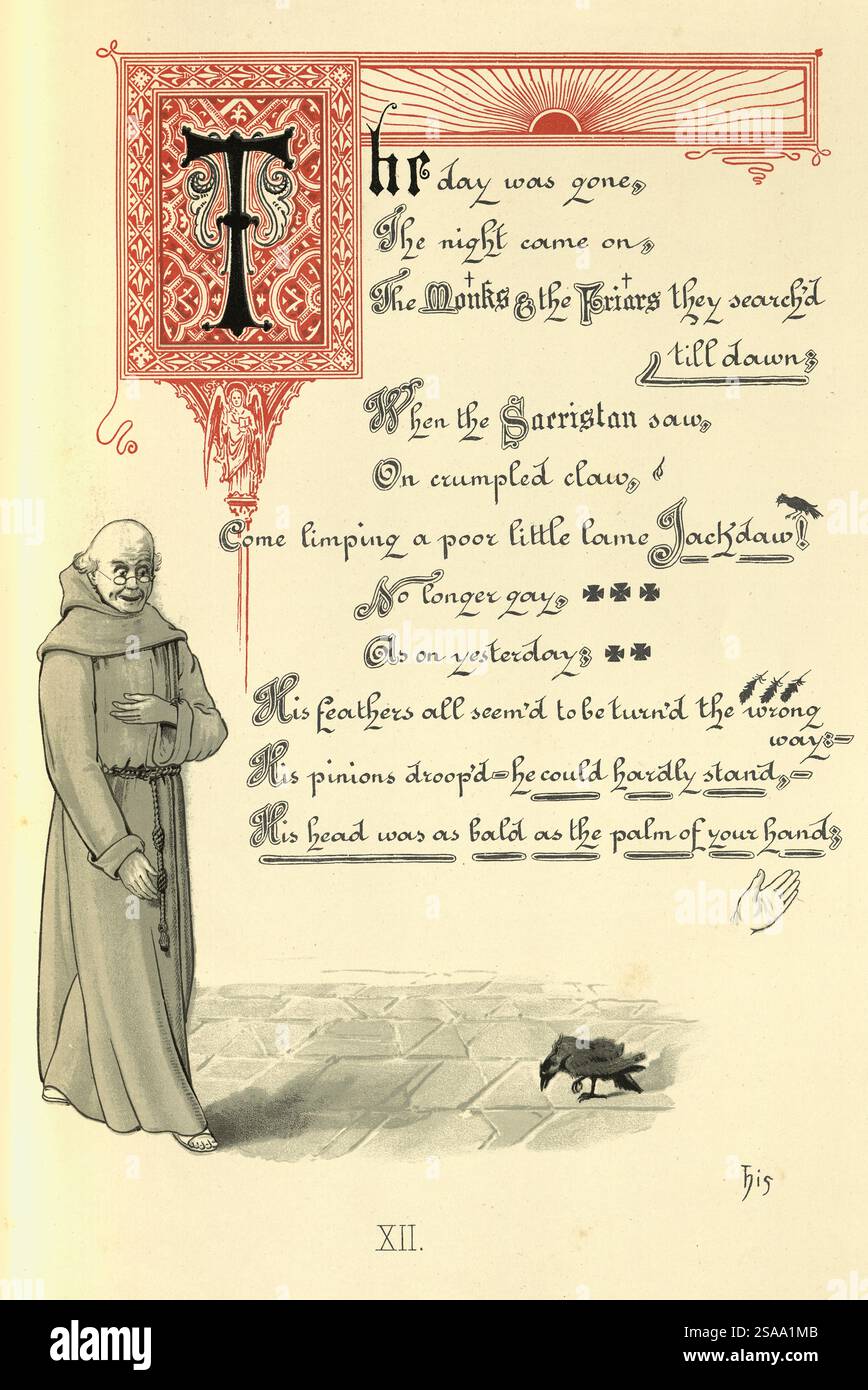 The day was gone,
The night came on,
The Monks & the Friars they search'd
till dawn;
When the Sacristan saw,
On crumpled claw,
Come limping a poor little lame Jackdaw!
No longer gay,
As on yesterday;
His feathers all seem'd to be turn'd the wrong
way:-
His pinions droop'd-he could hardly stand,-
His head was as bald as the palm of your hand;
His
XII.
alamy
Image ID: 2SAA1MB
www.alamy.com